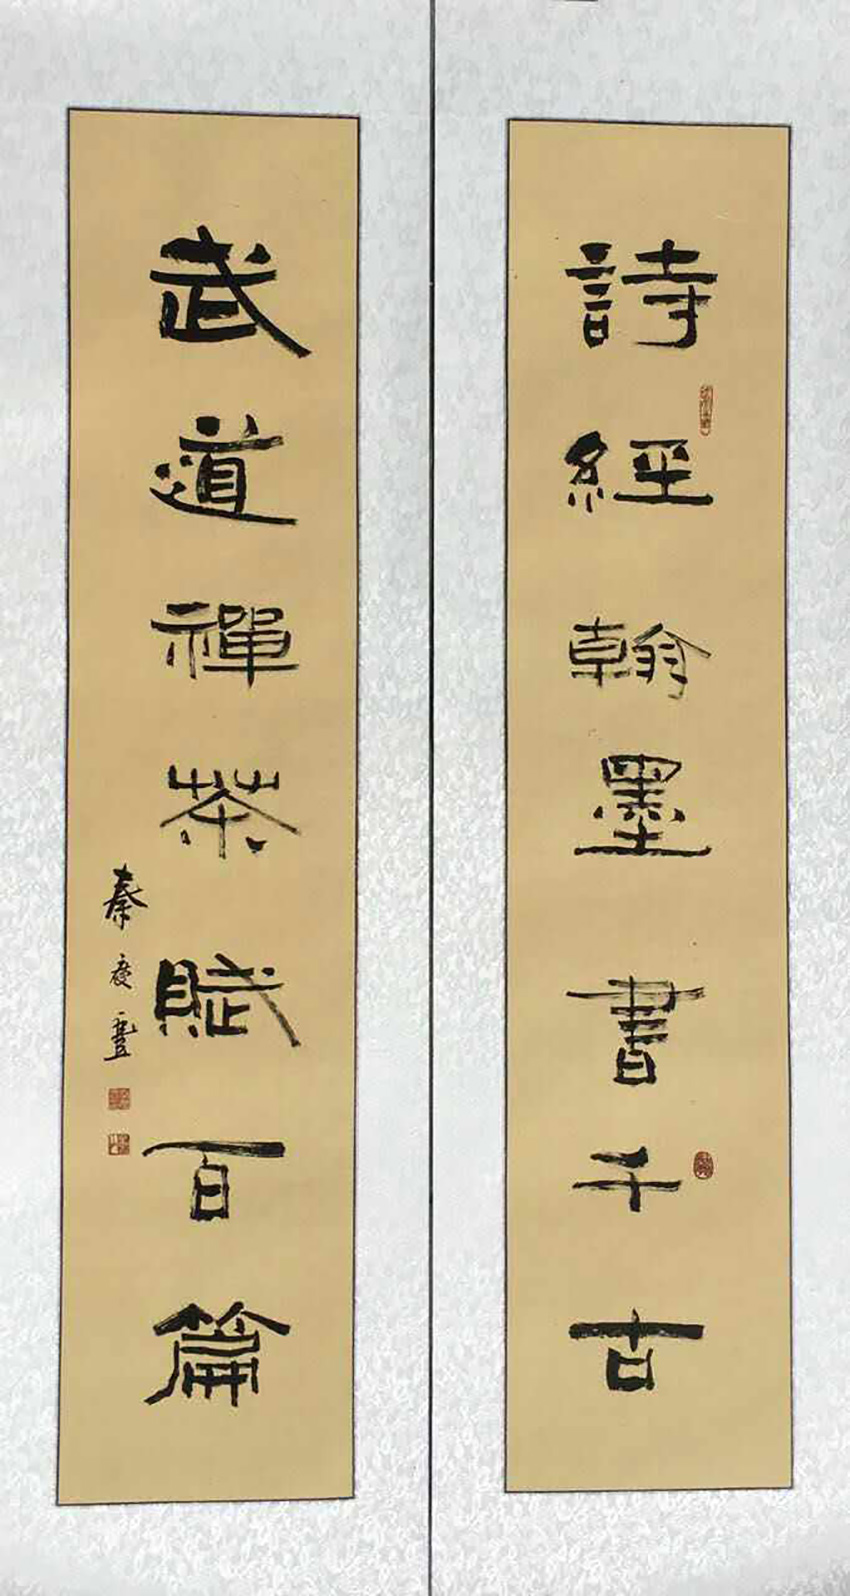 詩經翰墨書千古
武道禪茶賦百篇
秦慶豐